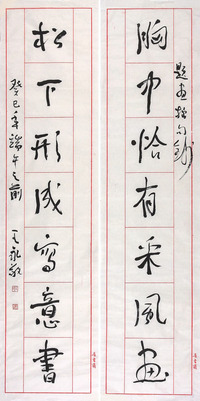 題画
胸中恰有采風畫
松下形成寫意書
癸巳年端午之前